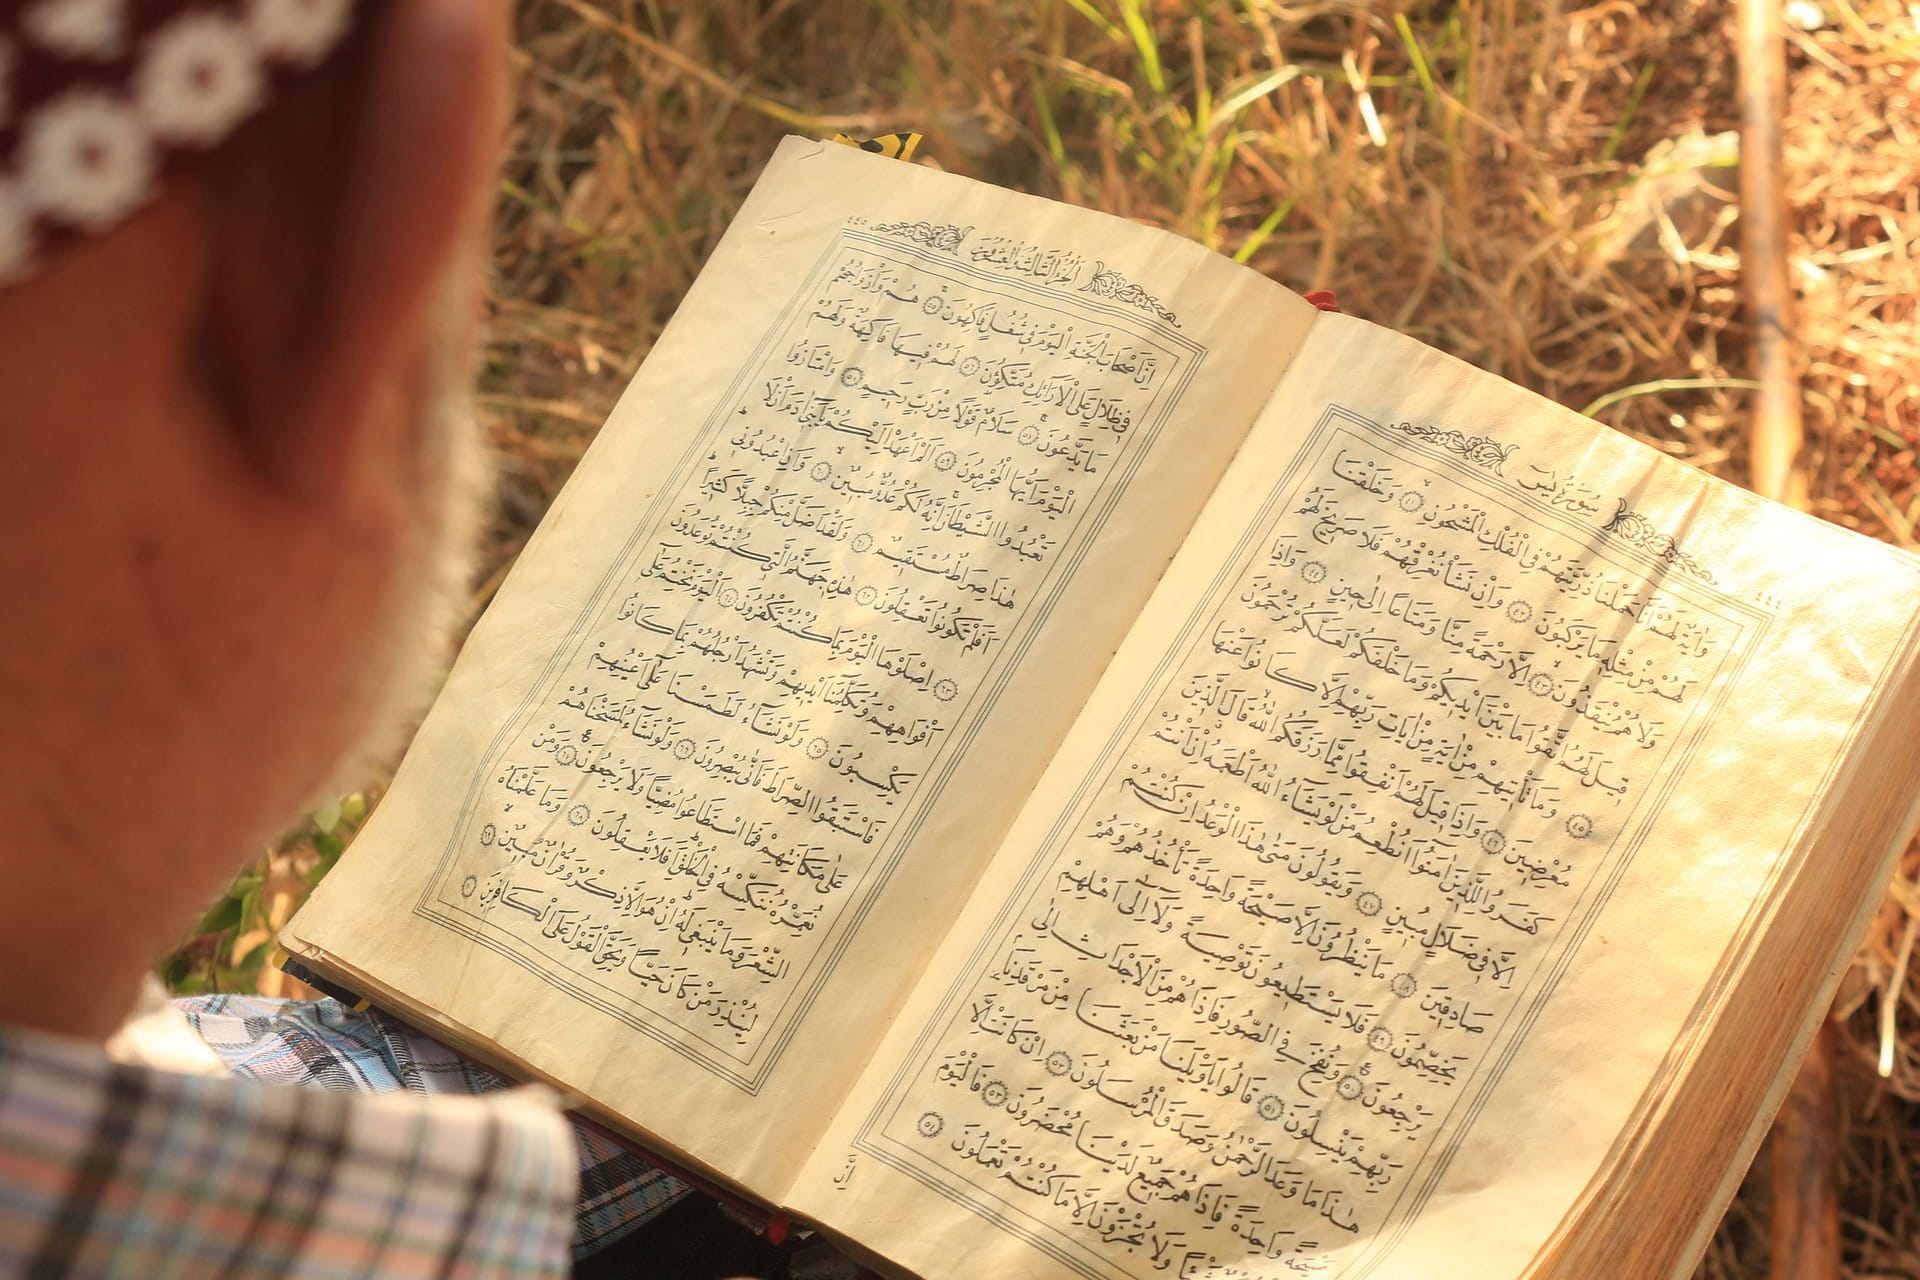 ٤٤٤
سُورَةُ يٰسٓ
وَاٰيَةٌ لَهُمْ اَنَّا حَمَلْنَا ذُرِّيَّتَهُمْ فِى الْفُلْكِ الْمَشْحُونِ ٤١ وَخَلَقْنَا
لَهُمْ مِنْ مِثْلِهِ مَا يَرْكَبُونَ ٤٢ وَاِنْ نَشَأْ نُغْرِقْهُمْ فَلَا صَرِيخَ لَهُمْ
وَلَا هُمْ يُنْقَذُونَ ٤٣ اِلَّا رَحْمَةً مِنَّا وَمَتَاعًا اِلٰى حِينٍ ٤٤ وَاِذَا
قِيلَ لَهُمُ اتَّقُوا مَا بَيْنَ اَيْدِيكُمْ وَمَا خَلْفَكُمْ لَعَلَّكُمْ تُرْحَمُونَ
٤٥ وَمَا تَأْتِيهِمْ مِنْ اٰيَةٍ مِنْ اٰيَاتِ رَبِّهِمْ اِلَّا كَانُوا عَنْهَا
مُعْرِضِينَ ٤٦ وَاِذَا قِيلَ لَهُمْ اَنْفِقُوا مِمَّا رَزَقَكُمُ اللّٰهُ قَالَ الَّذِينَ
كَفَرُوا لِلَّذِينَ اٰمَنُوا اَنُطْعِمُ مَنْ لَوْ يَشَاءُ اللّٰهُ اَطْعَمَهُ اِنْ اَنْتُمْ
اِلَّا فِى ضَلَالٍ مُبِينٍ ٤٧ وَيَقُولُونَ مَتٰى هٰذَا الْوَعْدُ اِنْ كُنْتُمْ
صَادِقِينَ ٤٨ مَا يَنْظُرُونَ اِلَّا صَيْحَةً وَاحِدَةً تَأْخُذُهُمْ وَهُمْ
يَخِصِّمُونَ ٤٩ فَلَا يَسْتَطِيعُونَ تَوْصِيَةً وَلَا اِلٰى اَهْلِهِمْ
يَرْجِعُونَ ٥٠ وَنُفِخَ فِى الصُّورِ فَاِذَا هُمْ مِنَ الْاَجْدَاثِ اِلٰى
رَبِّهِمْ يَنْسِلُونَ ٥١ قَالُوا يَا وَيْلَنَا مَنْ بَعَثَنَا مِنْ مَرْقَدِنَا
هٰذَا مَا وَعَدَ الرَّحْمٰنُ وَصَدَقَ الْمُرْسَلُونَ ٥٢ اِنْ كَانَتْ اِلَّا
صَيْحَةً وَاحِدَةً فَاِذَا هُمْ جَمِيعٌ لَدَيْنَا مُحْضَرُونَ ٥٣ فَالْيَوْمَ
شَيْئًا وَلَا تُجْزَوْنَ اِلَّا مَا كُنْتُمْ تَعْمَلُونَ ٥٤
اِنَّ
٤٤٥
اَلْجُزْءُ الثَّالِثُ وَالْعِشْرُونَ
اِنَّ اَصْحَابَ الْجَنَّةِ الْيَوْمَ فِى شُغُلٍ فَاكِهُونَ ٥٥ هُمْ وَاَزْوَاجُهُمْ
فِى ظِلَالٍ عَلَى الْاَرَائِكِ مُتَّكِؤُنَ ٥٦ لَهُمْ فِيهَا فَاكِهَةٌ وَلَهُمْ
مَا يَدَّعُونَ ٥٧ سَلَامٌ قَوْلًا مِنْ رَبٍّ رَحِيمٍ ٥٨ وَامْتَازُوا
الْيَوْمَ اَيُّهَا الْمُجْرِمُونَ ٥٩ اَلَمْ اَعْهَدْ اِلَيْكُمْ يَا بَنِى اٰدَمَ اَنْ لَا
تَعْبُدُوا الشَّيْطَانَ اِنَّهُ لَكُمْ عَدُوٌّ مُبِينٌ ٦٠ وَاَنِ اعْبُدُونِى
هٰذَا صِرَاطٌ مُسْتَقِيمٌ ٦١ وَلَقَدْ اَضَلَّ مِنْكُمْ جِبِلًّا كَثِيرًا
اَفَلَمْ تَكُونُوا تَعْقِلُونَ ٦٢ هٰذِهِ جَهَنَّمُ الَّتِى كُنْتُمْ تُوعَدُونَ
٦٣ اِصْلَوْهَا الْيَوْمَ بِمَا كُنْتُمْ تَكْفُرُونَ ٦٤ اَلْيَوْمَ نَخْتِمُ عَلٰى
اَفْوَاهِهِمْ وَتُكَلِّمُنَا اَيْدِيهِمْ وَتَشْهَدُ اَرْجُلُهُمْ بِمَا كَانُوا
يَكْسِبُونَ ٦٥ وَلَوْ نَشَاءُ لَطَمَسْنَا عَلٰى اَعْيُنِهِمْ
فَاسْتَبَقُوا الصِّرَاطَ فَاَنّٰى يُبْصِرُونَ ٦٦ وَلَوْ نَشَاءُ لَمَسَخْنَاهُمْ
عَلٰى مَكَانَتِهِمْ فَمَا اسْتَطَاعُوا مُضِيًّا وَلَا يَرْجِعُونَ ٦٧ وَمَنْ
نُعَمِّرْهُ نُنَكِّسْهُ فِى الْخَلْقِ اَفَلَا يَعْقِلُونَ ٦٨ وَمَا عَلَّمْنَاهُ
الشِّعْرَ وَمَا يَنْبَغِى لَهُ اِنْ هُوَ اِلَّا ذِكْرٌ وَقُرْاٰنٌ مُبِينٌ ٦٩
لِيُنْذِرَ مَنْ كَانَ حَيًّا وَيَحِقَّ الْقَوْلُ عَلَى الْكَافِرِينَ ٧٠